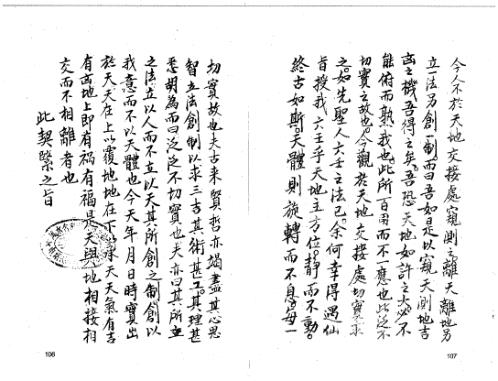 今人不於天地交接處窺測離天離地另
立一法另創一制而曰吾如是以窺天測地吉
凶之機吾得之矣吾恐天地如許之大必不
能俯而就我也此所百用而不一應也此泛不
切實之故也今觀於天地交接處切實求
之如先聖人六壬之法已余何幸得遇仙
旨授我六壬乎天地主方位靜而不動
終古如斯天體則旋轉而不息毋一
107
切實故也夫古來賢哲亦竭盡其心思
智立法創制以求三吉其術甚工其理甚
悉胡為而曰泛泛不切實也夫亦曰其所立
之法立以人而不立以天其所創之制創以
我意而不以天體也今天年月日時實出
於天天在上以覆地地在下以承天天氣有吉
有凶地上即有禍有福是天與地相接相
交而不相離者也
此契緊之旨
108